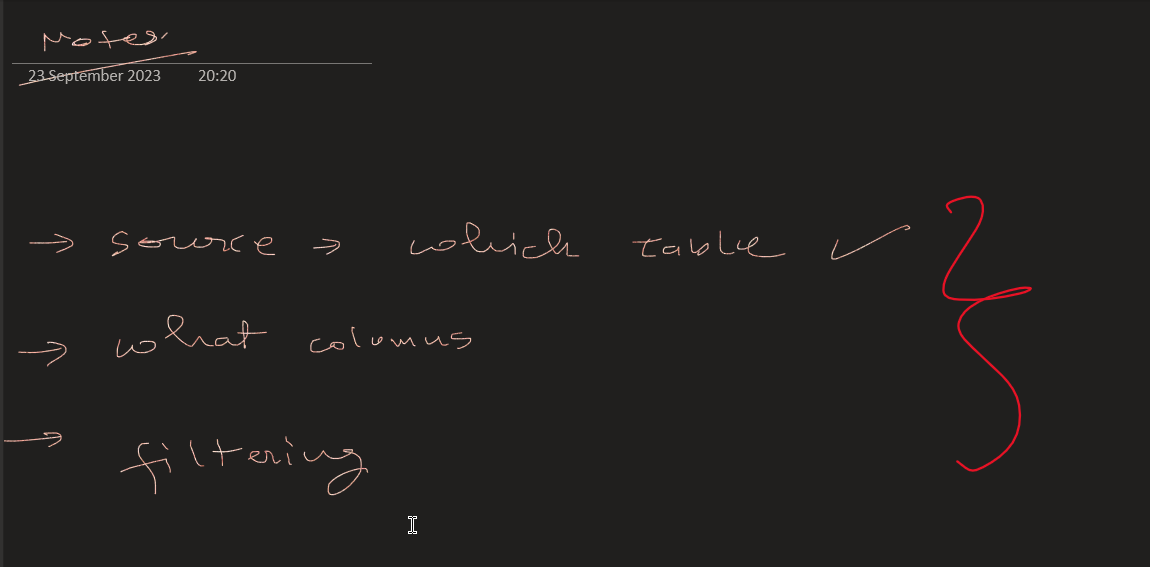 Notes
23 September 2023 20:20
→ source → which table ✓
→ what columns
→ filtering